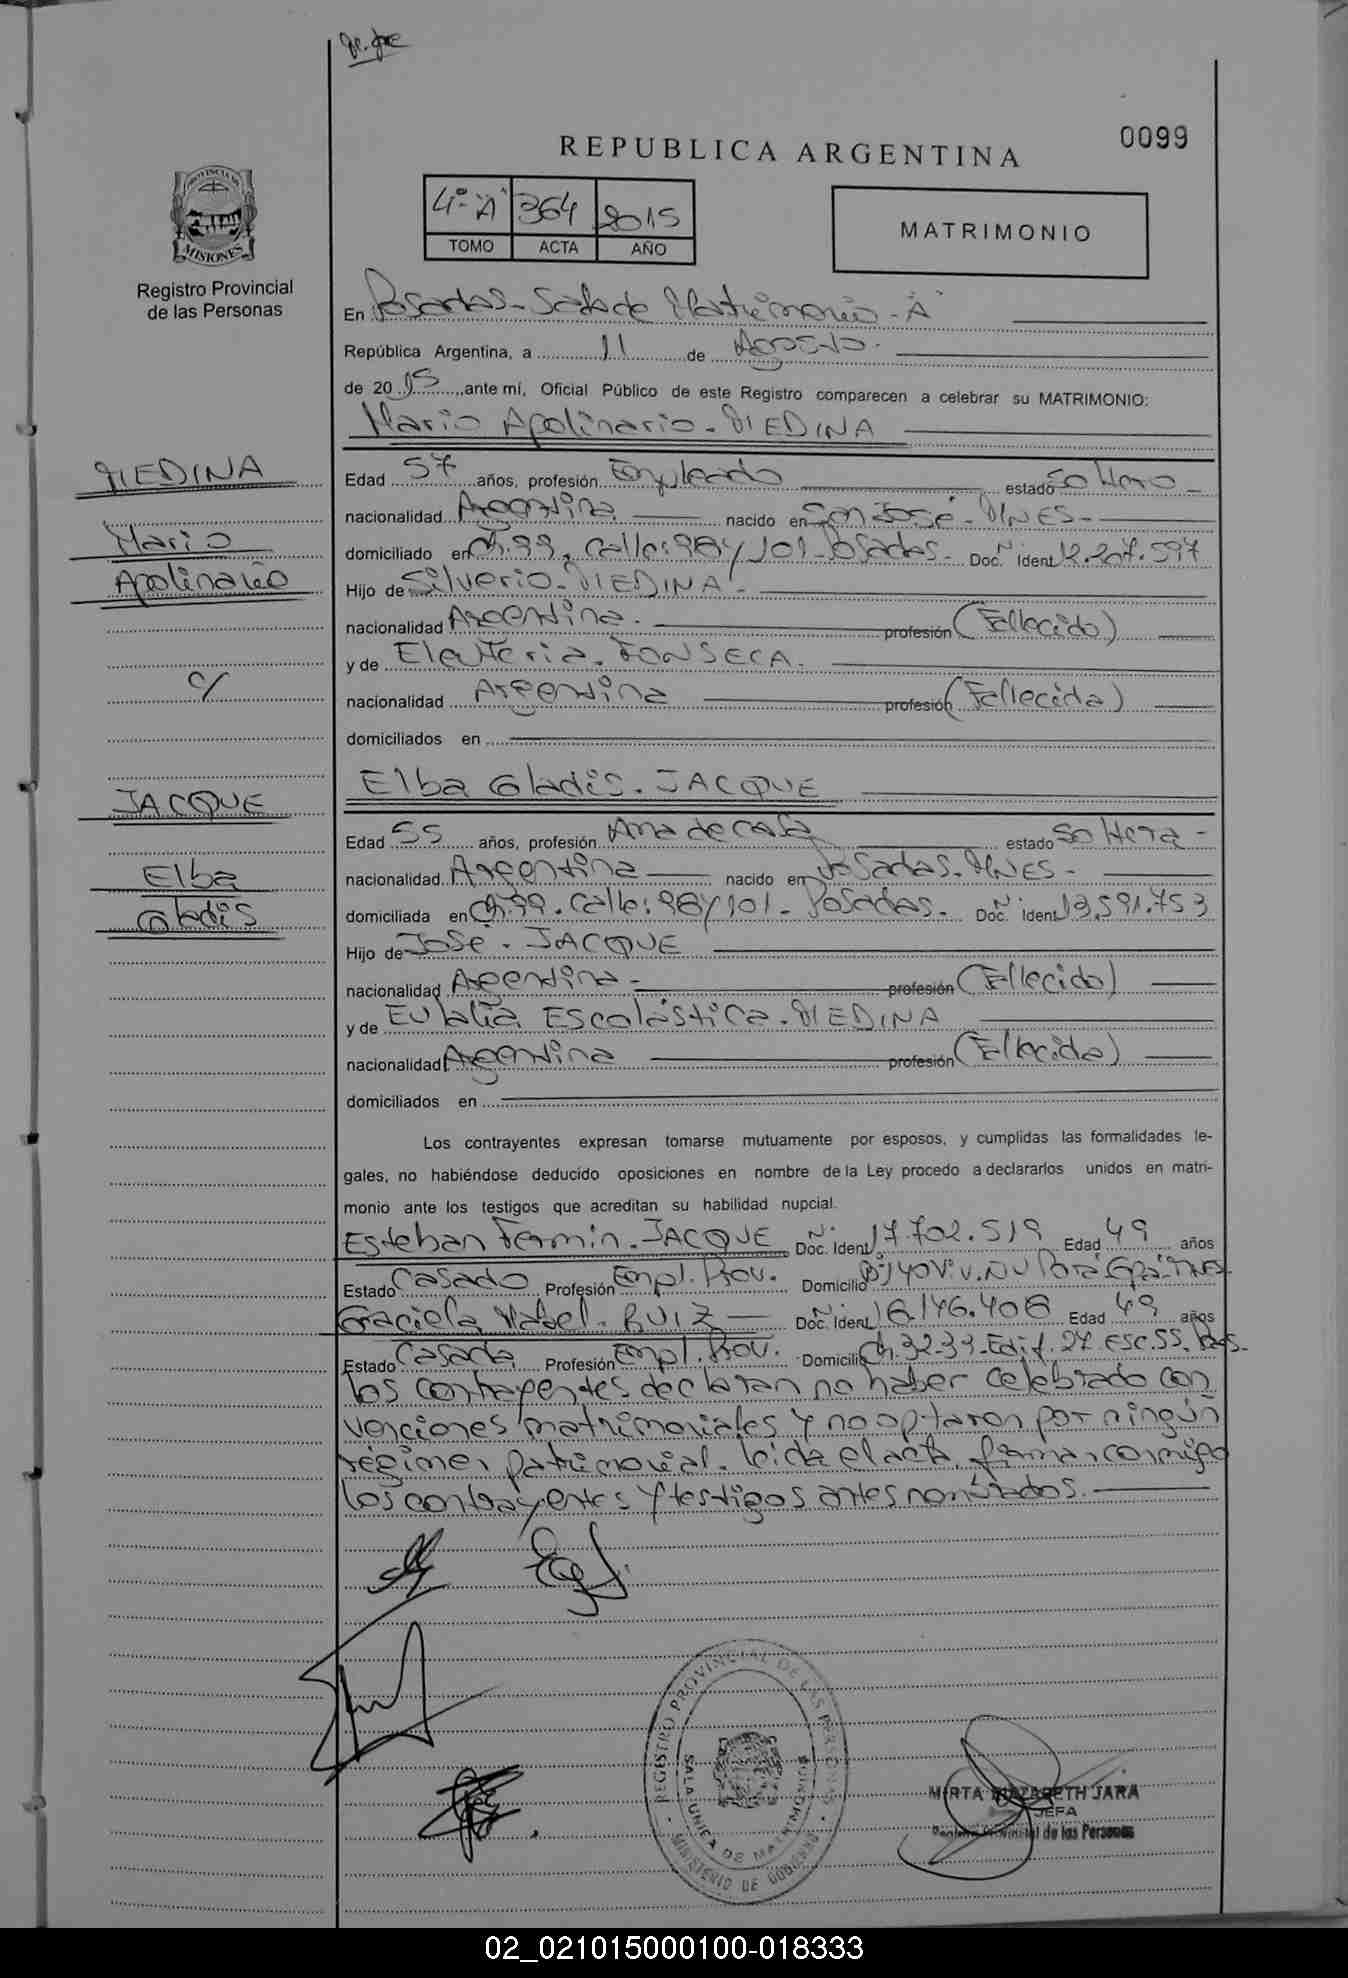 REPUBLICA ARGENTINA
0099
4º "A" 364 2015
TOMO ACTA AÑO
MATRIMONIO
PROVINCIA DE MISIONES
Registro Provincial
de las Personas
En Posadas - Sala de Matrimonio - "A"
República Argentina, a 11 de Agosto.
de 2015, ante mí, Oficial Público de este Registro comparecen a celebrar su MATRIMONIO:
Mario Apolinario. MEDINA
MEDINA
Mario
Apolinario
c/
JACQUE
Elba
Gladis
Edad 57 años, profesión Empleado estado Soltero -
nacionalidad Argentina nacido en San José - MNES -
domiciliado en Ch. 99. Calle: 98 y 101 - Posadas. Doc. Nº Ident. 12.207.597
Hijo de Silverio. MEDINA -
nacionalidad Argentina. profesión (Fallecido)
y de Eleuteria. FONSECA.
nacionalidad Argentina profesión (Fallecida)
domiciliados en
Elba Gladis. JACQUE
Edad 55 años, profesión Ama de casa estado Soltera -
nacionalidad Argentina nacido en Posadas. MNES -
domiciliada en Ch. 99. Calle: 98 y 101 - Posadas. Doc. Nº Ident. 13.591.753
Hijo de José. JACQUE
nacionalidad Argentina - profesión (Fallecido)
y de Eulalia Escolástica. MEDINA
nacionalidad Argentina profesión (Fallecida)
domiciliados en
Los contrayentes expresan tomarse mutuamente por esposos, y cumplidas las formalidades le-
gales, no habiéndose deducido oposiciones en nombre de la Ley procedo a declararlos unidos en matri-
monio ante los testigos que acreditan su habilidad nupcial.
Esteban Fermin. JACQUE Doc. Nº Ident. 17.702.519 Edad 49 años
Estado Casado Profesión Empl. Prov. Domicilio
Graciela Mabel. RUIZ Doc. Nº Ident. 16.146.406 Edad 49 años
Estado Casada Profesión Empl. Prov. Domicilio Ch. 32-33 - Edif. 27. esc. 55.
los contrayentes declaran no haber celebrado con
venciones matrimoniales y no optaron por ningún
régimen patrimonial. leida el acta, firman conmigo
los contrayentes y testigos antes nombrados.
REGISTRO PROVINCIAL DE LAS PERSONAS
SALA UNICA DE MATRIMONIOS
MINISTERIO DE GOBIERNO
MIRTA ELIZABETH JARA
JEFA
Registro Provincial de las Personas
02_021015000100-018333